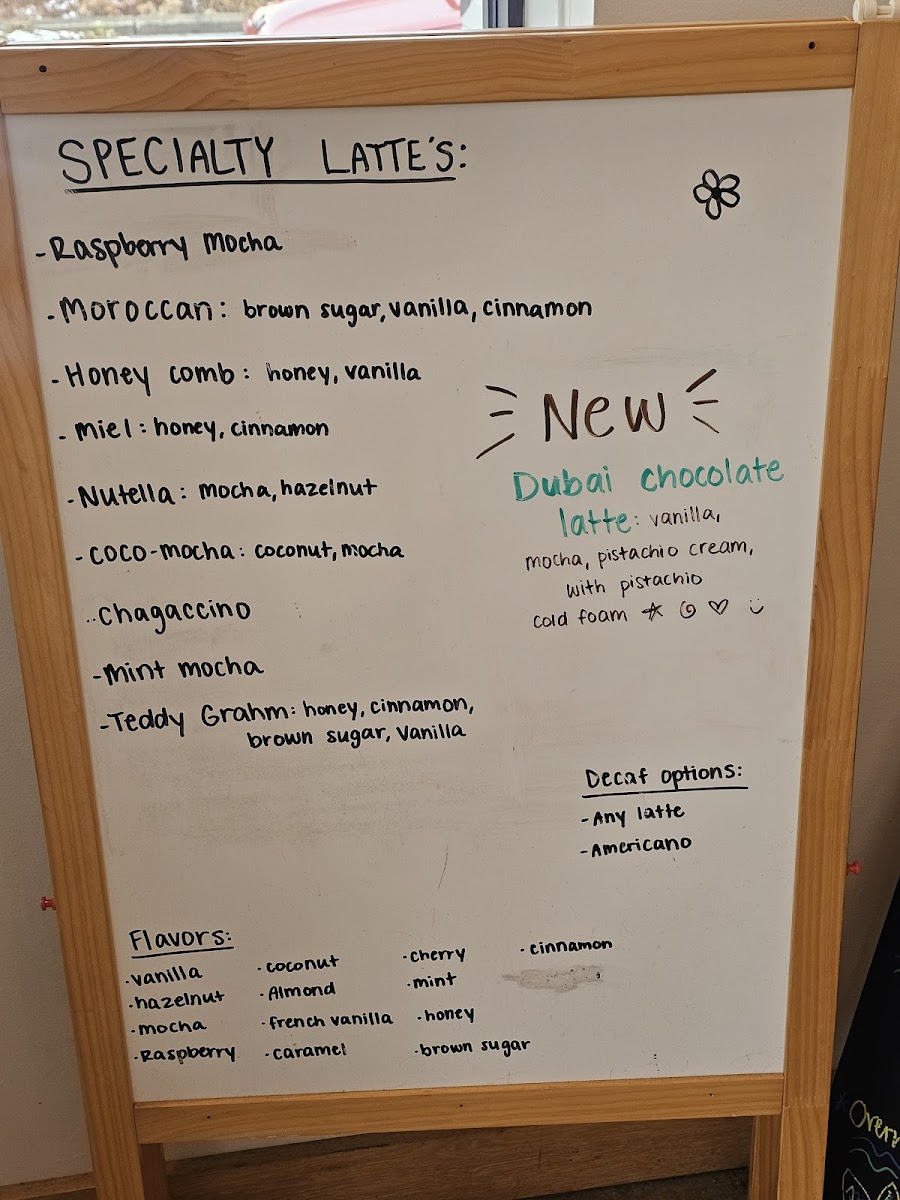 SPECIALTY LATTE'S:
-Raspberry mocha
-Moroccan: brown sugar, vanilla, cinnamon
-Honey comb: honey, vanilla
-miel: honey, cinnamon
-Nutella: mocha, hazelnut
-coco-mocha: coconut, mocha
-Chagaccino
-mint mocha
-Teddy Grahm: honey, cinnamon,
brown sugar, vanilla
New
Dubai chocolate
latte: vanilla,
mocha, pistachio cream,
with pistachio
cold foam
Decaf options:
-Any latte
-Americano
Flavors:
·vanilla
·hazelnut
·mocha
·Raspberry
·coconut
·Almond
·french vanilla
·caramel
·cherry
·mint
·honey
·brown sugar
·cinnamon